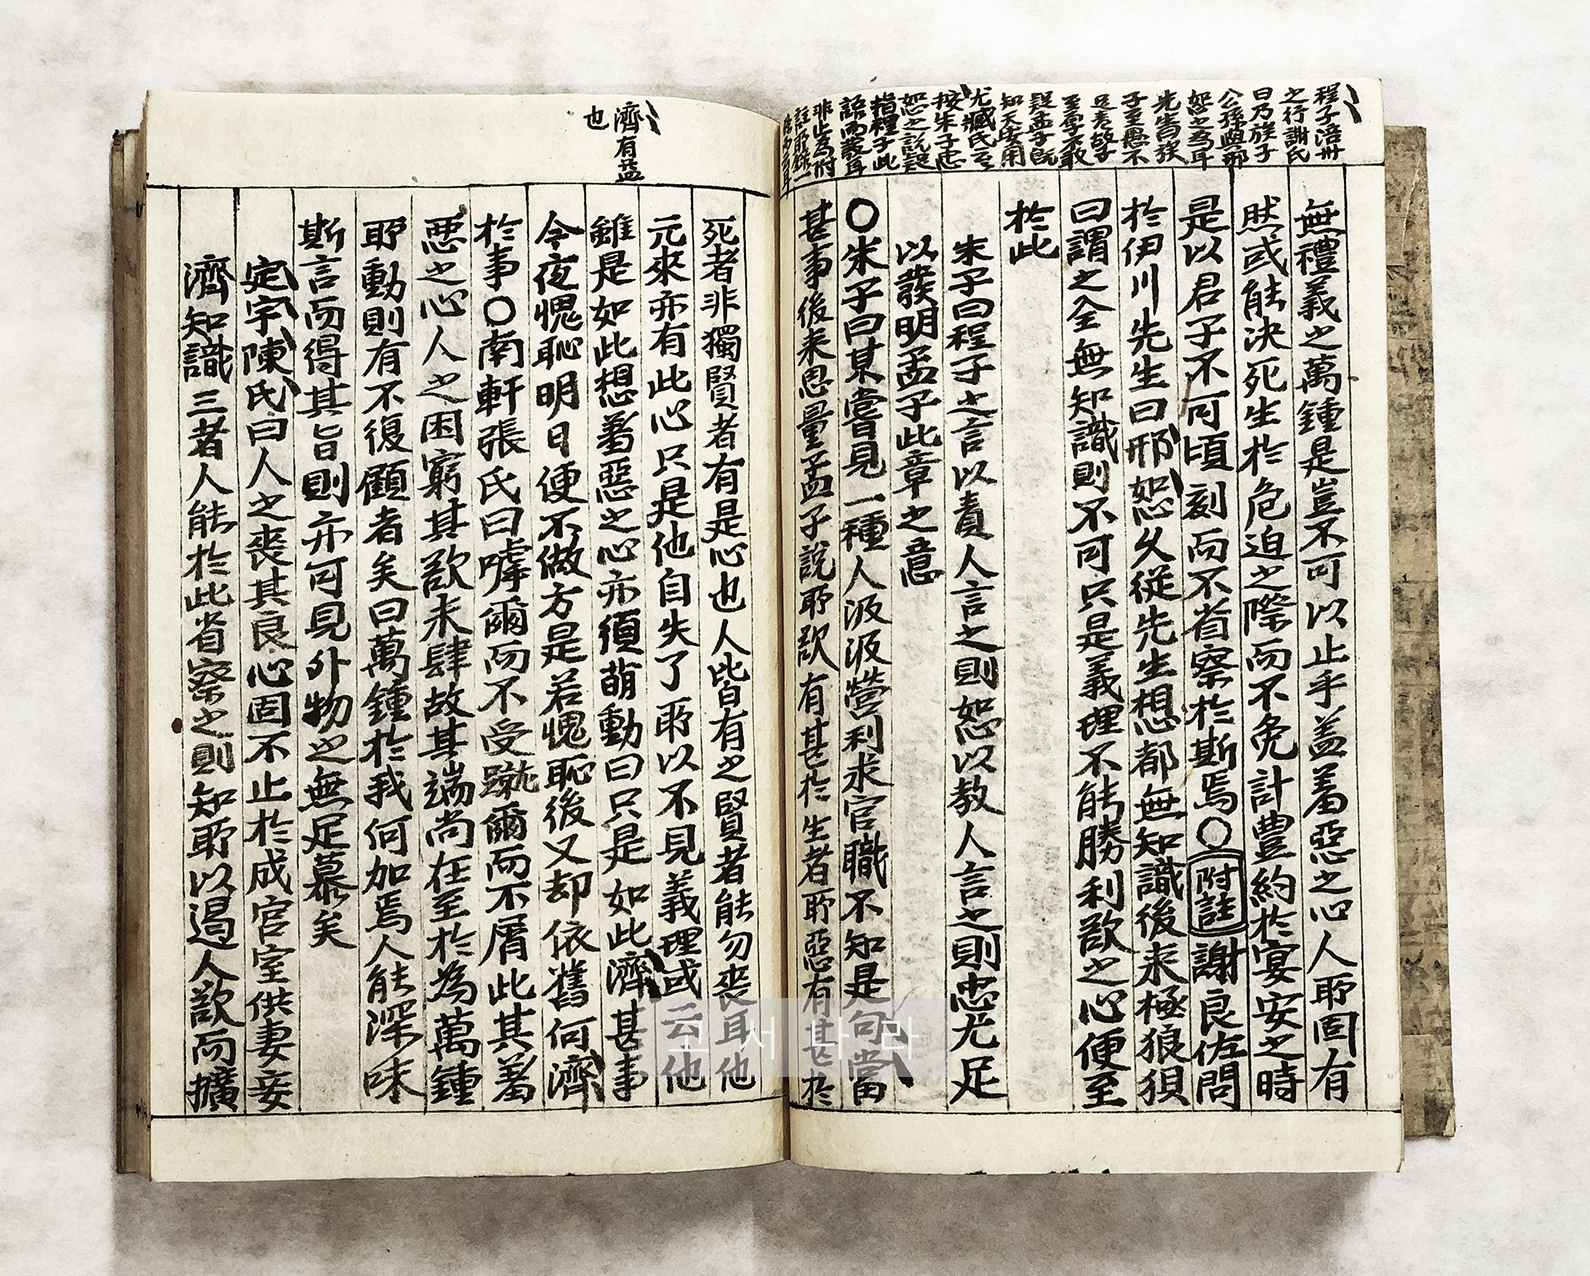 程子涪州
之行謝氏
曰乃族子
公孫與邢
恕之爲耳
先生曰族
子至愚不
足責故子
至厚不敢
疑孟子旣
知天安用
尤臧氏云
按朱子忠
恕之說疑
指程子此
語而發耳
非止爲附
無禮義之萬鍾是豈不可以止乎盖羞惡之心人所固有
然或能決死生於危迫之際而不免計豊約於宴安之時
是以君子不可頃刻而不省察於斯焉○附註謝良佐問
於伊川先生曰邢恕久從先生想都無知識後来極狼狽
曰謂之全無知識則不可只是義理不能勝利欲之心便至
於此
朱子曰程子之言以責人言之則恕以教人言之則忠尤足
以發明孟子此章之意
○朱子曰某嘗見一種人汲汲營利求官職不知是句當
甚事後来思量孟子說所欲有甚於生者所惡有甚於
濟有益
也
死者非獨賢者有是心也人皆有之賢者能勿喪耳他
元來亦有此心只是他自失了所以不見義理或云他
雖是如此想羞惡之心亦須萌動曰只是如此濟甚事
今夜愧恥明日便不做方是若愧恥後又却依舊何濟
於事○南軒張氏曰嘑爾而不受蹴爾而不屑此其羞
惡之心人之困窮其欲未肆故其端尚在至於為萬鍾
所動則有不復顧者矣曰萬鍾於我何加焉人能深味
斯言而得其旨則亦可見外物之無足慕矣
定宇陳氏曰人之喪其良心固不止於成宮室供妻妾
濟知識三者人能於此省察之則知所以遏人欲而擴
고서나라